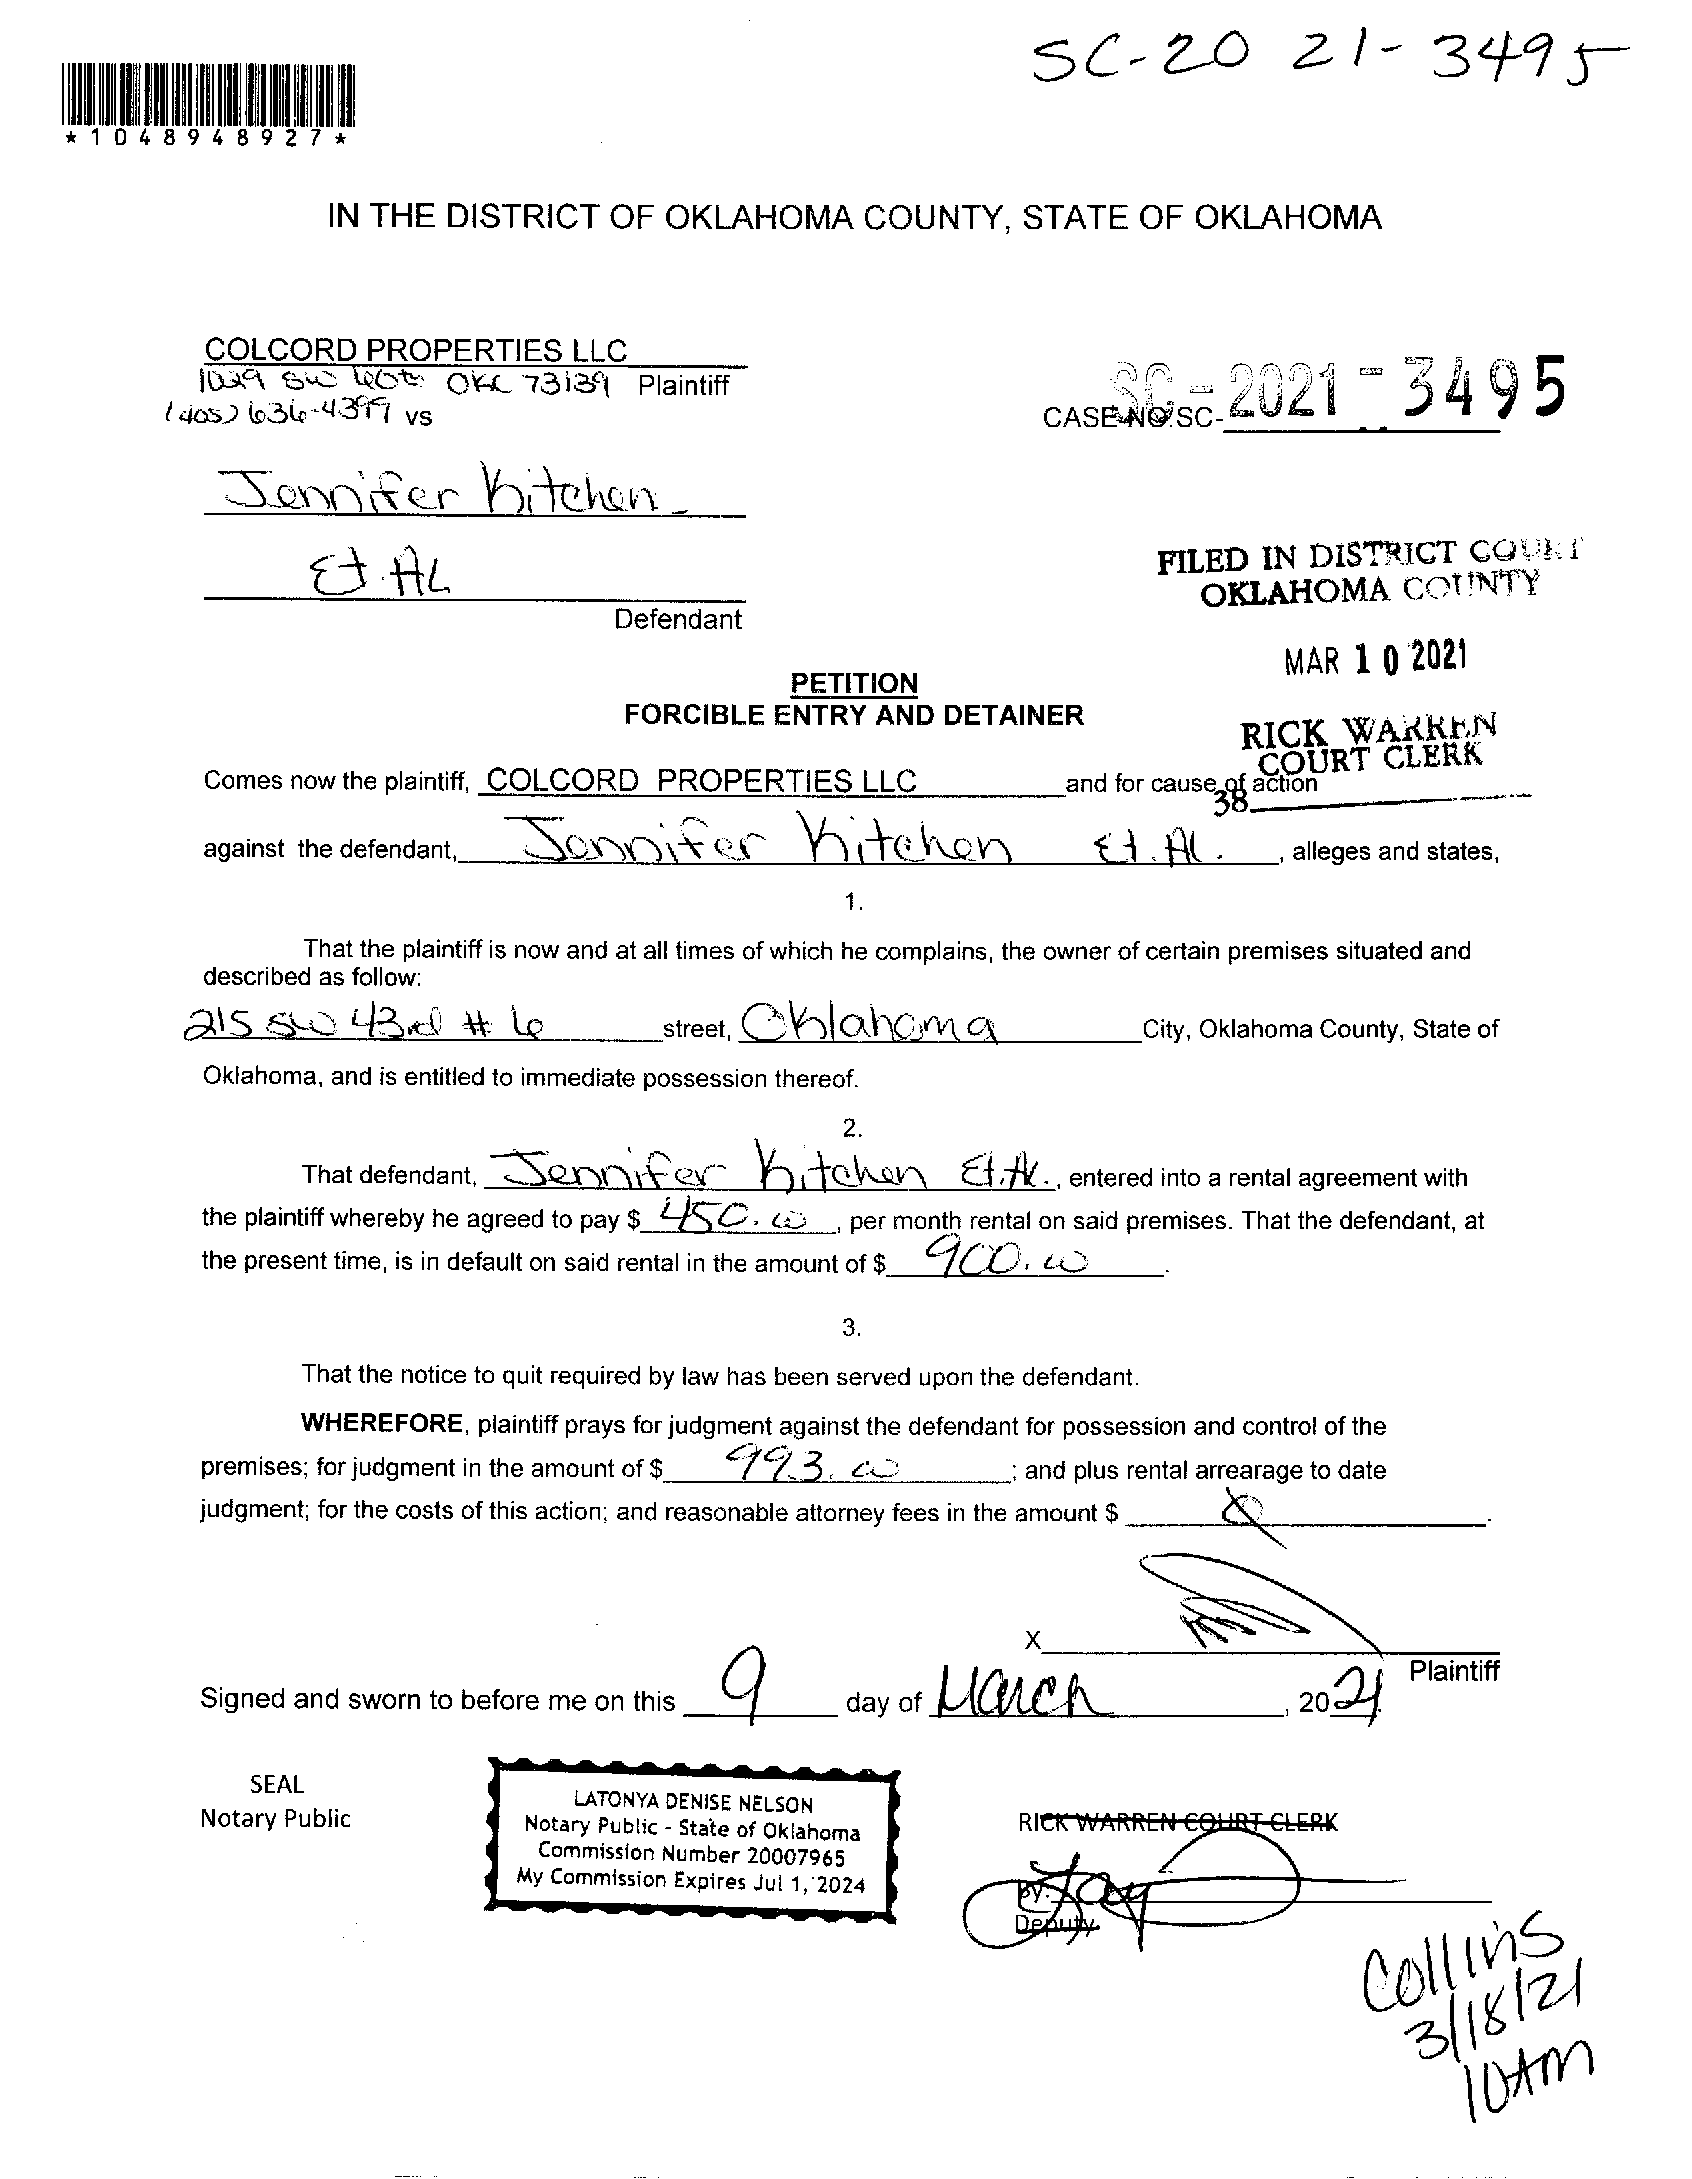 SC-2021-3495
*1048948927*
IN THE DISTRICT OF OKLAHOMA COUNTY, STATE OF OKLAHOMA
COLCORD PROPERTIES LLC
1029 SW 60th OKC 73139 Plaintiff
(405) 636-4399 vs
CASE NO. SC- SC-2021-3495
Jennifer Kitchen
Et. AL
Defendant
FILED IN DISTRICT COURT
OKLAHOMA COUNTY
MAR 10 2021
RICK WARREN
COURT CLERK
38
PETITION
FORCIBLE ENTRY AND DETAINER
Comes now the plaintiff, COLCORD PROPERTIES LLC and for cause of action
against the defendant, Jennifer Kitchen Et. Al. , alleges and states,
1.
That the plaintiff is now and at all times of which he complains, the owner of certain premises situated and
described as follow:
215 SW 43rd # 6 street, Oklahoma City, Oklahoma County, State of
Oklahoma, and is entitled to immediate possession thereof.
2.
That defendant, Jennifer Kitchen Et. Al., entered into a rental agreement with
the plaintiff whereby he agreed to pay $ 450.00 , per month rental on said premises. That the defendant, at
the present time, is in default on said rental in the amount of $ 900.00 .
3.
That the notice to quit required by law has been served upon the defendant.
WHEREFORE, plaintiff prays for judgment against the defendant for possession and control of the
premises; for judgment in the amount of $ 993.00 ; and plus rental arrearage to date
judgment; for the costs of this action; and reasonable attorney fees in the amount $ .
X
Plaintiff
Signed and sworn to before me on this 9 day of March , 2021
SEAL
Notary Public
LATONYA DENISE NELSON
Notary Public - State of Oklahoma
Commission Number 20007965
My Commission Expires Jul 1, 2024
RICK WARREN COURT CLERK
By:
Deputy
Collins
3/18/21
10AM